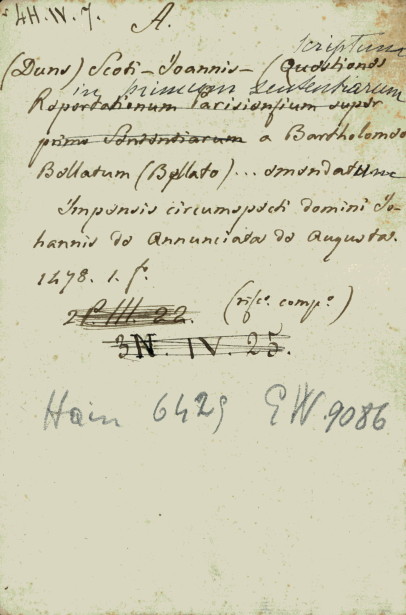 4H. IV. 7.
A.
scriptum
(Duns) Scoti - Joannis - (Quaestiones
in primum sententiarum
Reportationum Parisiensium super
primo Sententiarum a Bartholomaeo
Bellatum (Bellato) ... emendatum
Impensis circumspecti domini Jo-
hannis de Annunciata de Augusta.
1478. 1. f.
2P. III. 22.
3N. IV. 25.
Hain 6429 GW. 9086